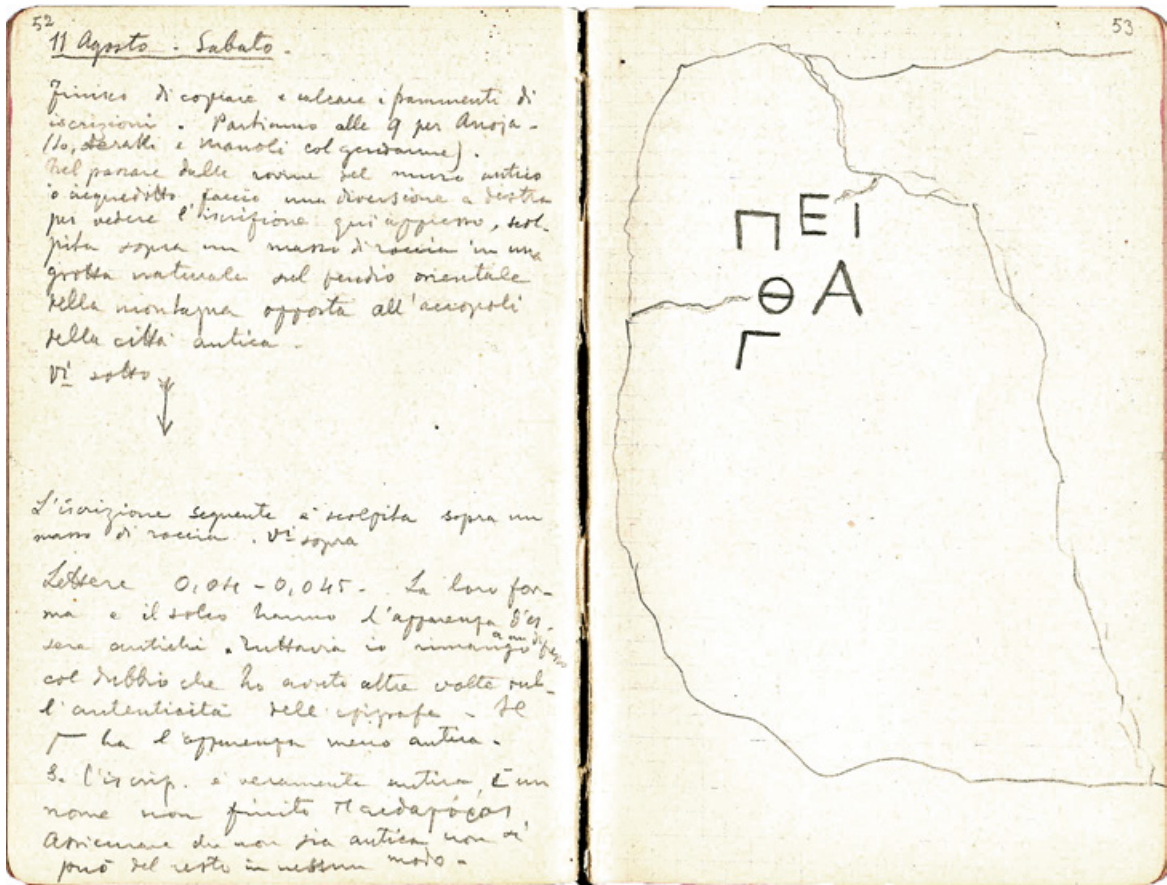 52
11 Agosto . Sabato .
Finisco di copiare e calcare i frammenti di
iscrizioni . Partiamo alle 9 per Anoja -
(Io, e Manoli col gendarme).
Nel passare dalle rovine del muro antico
o acquedotto faccio una diversione a destra
per vedere l'iscrizione qui appresso, scol-
pita sopra un masso di roccia in una
grotta naturale sul pendio orientale
della montagna opposta all'acropoli
della città antica .
Vi sotto
L'iscrizione seguente è scolpita sopra un
masso di roccia . Vi sopra
Lettere 0,04 - 0,045 - La loro for-
ma e il solco hanno l'apparenza d'es-
sere antichi . Tuttavia io rimango
col dubbio che ho avuto altre volte sul-
l'autenticità dell'epigrafe - Il
Γ ha l'apparenza meno antica .
Se l'iscrip. è veramente antica, è un
nome non finito
Assicurare che non sia antica non si
può del resto in nessun modo -
53
ΠΕΙ
ΘΑ
Γ